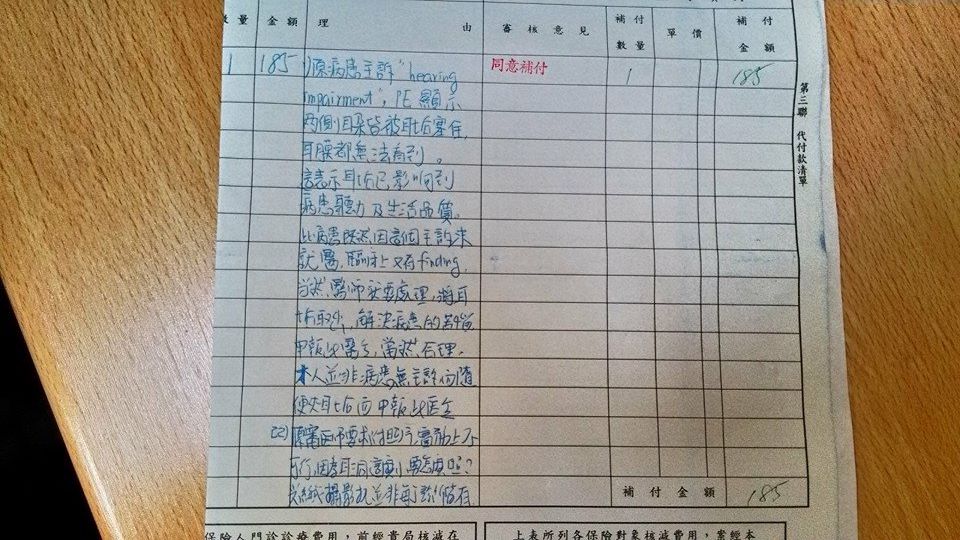 數量 金額 理由 審核意見 補付數量 單價 補付金額
1 185 1)原病患主訴"hearing 同意補付 1 185
impairment", PE顯示
兩側耳朵皆被耳垢塞住,
耳膜都無法看到。
這表示耳垢已影響到
病患聽力及生活品質,
此病患既然因這個主訴來
就醫,臨床上又有finding,
當然醫師就要處理,將耳
垢取出,解決病患的苦惱
申報此醫令,當然合理。
本人並非病患無主訴而隨
便夾耳垢而申報此醫令
(2)原審醫師要求附照片,實務上不
可行,因為耳洞這麼小,要怎麼照?
攝影機並非每診所皆有
補付金額 185
第三聯 代付款清單
保險人門診診療費用,前經貴局核減在
上表所列各保險對象核減費用,業經本